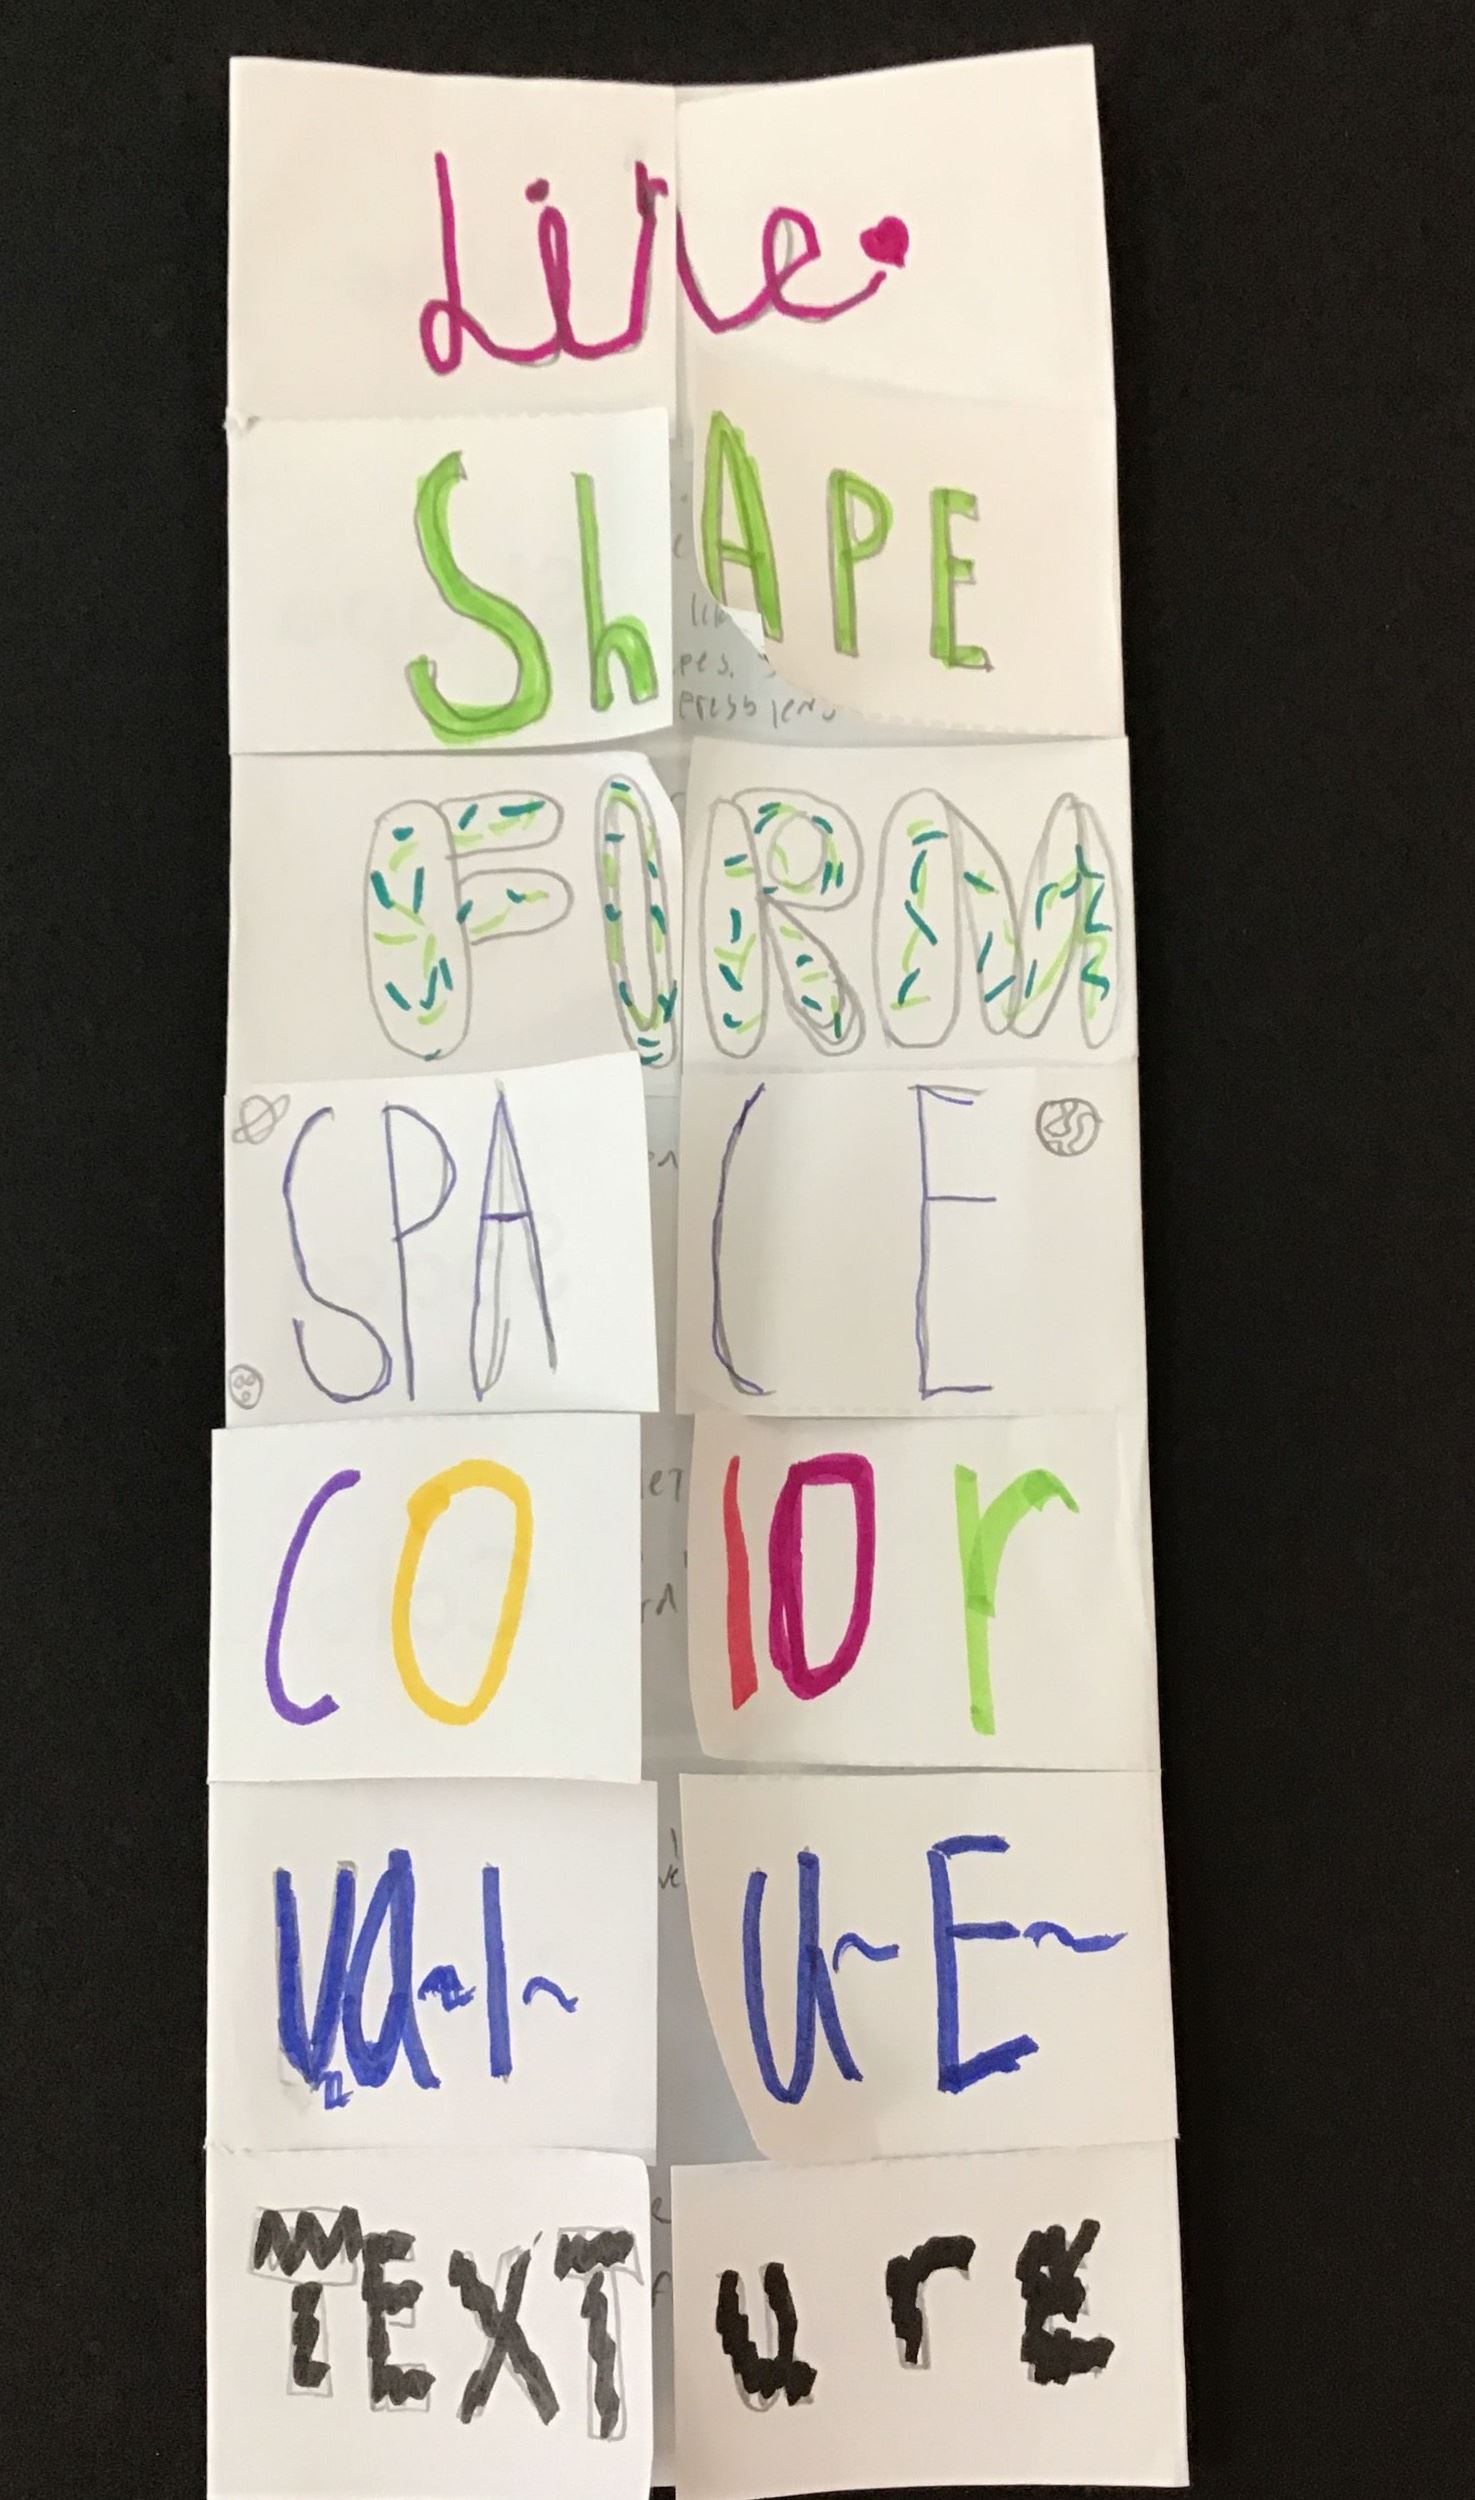 Line
ShAPE
FORM
SPACE
COlOr
Va~l~u~E~
TEXTurE